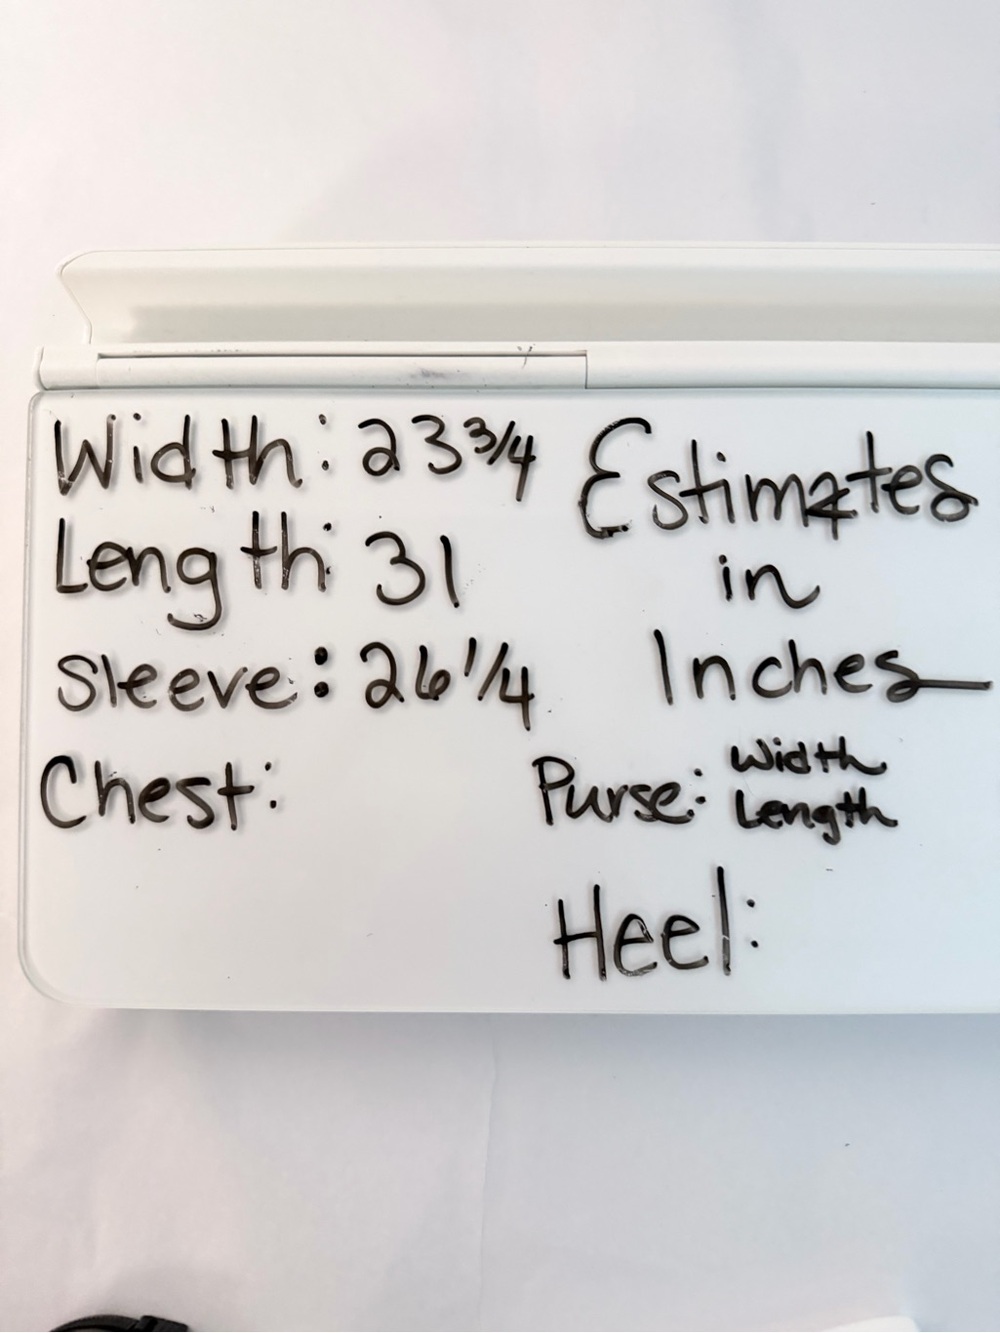 Width: 23 3/4
Length: 31
Sleeve: 26 1/4
Chest:
Estimates
in
Inches
Purse: Width
Length
Heel: